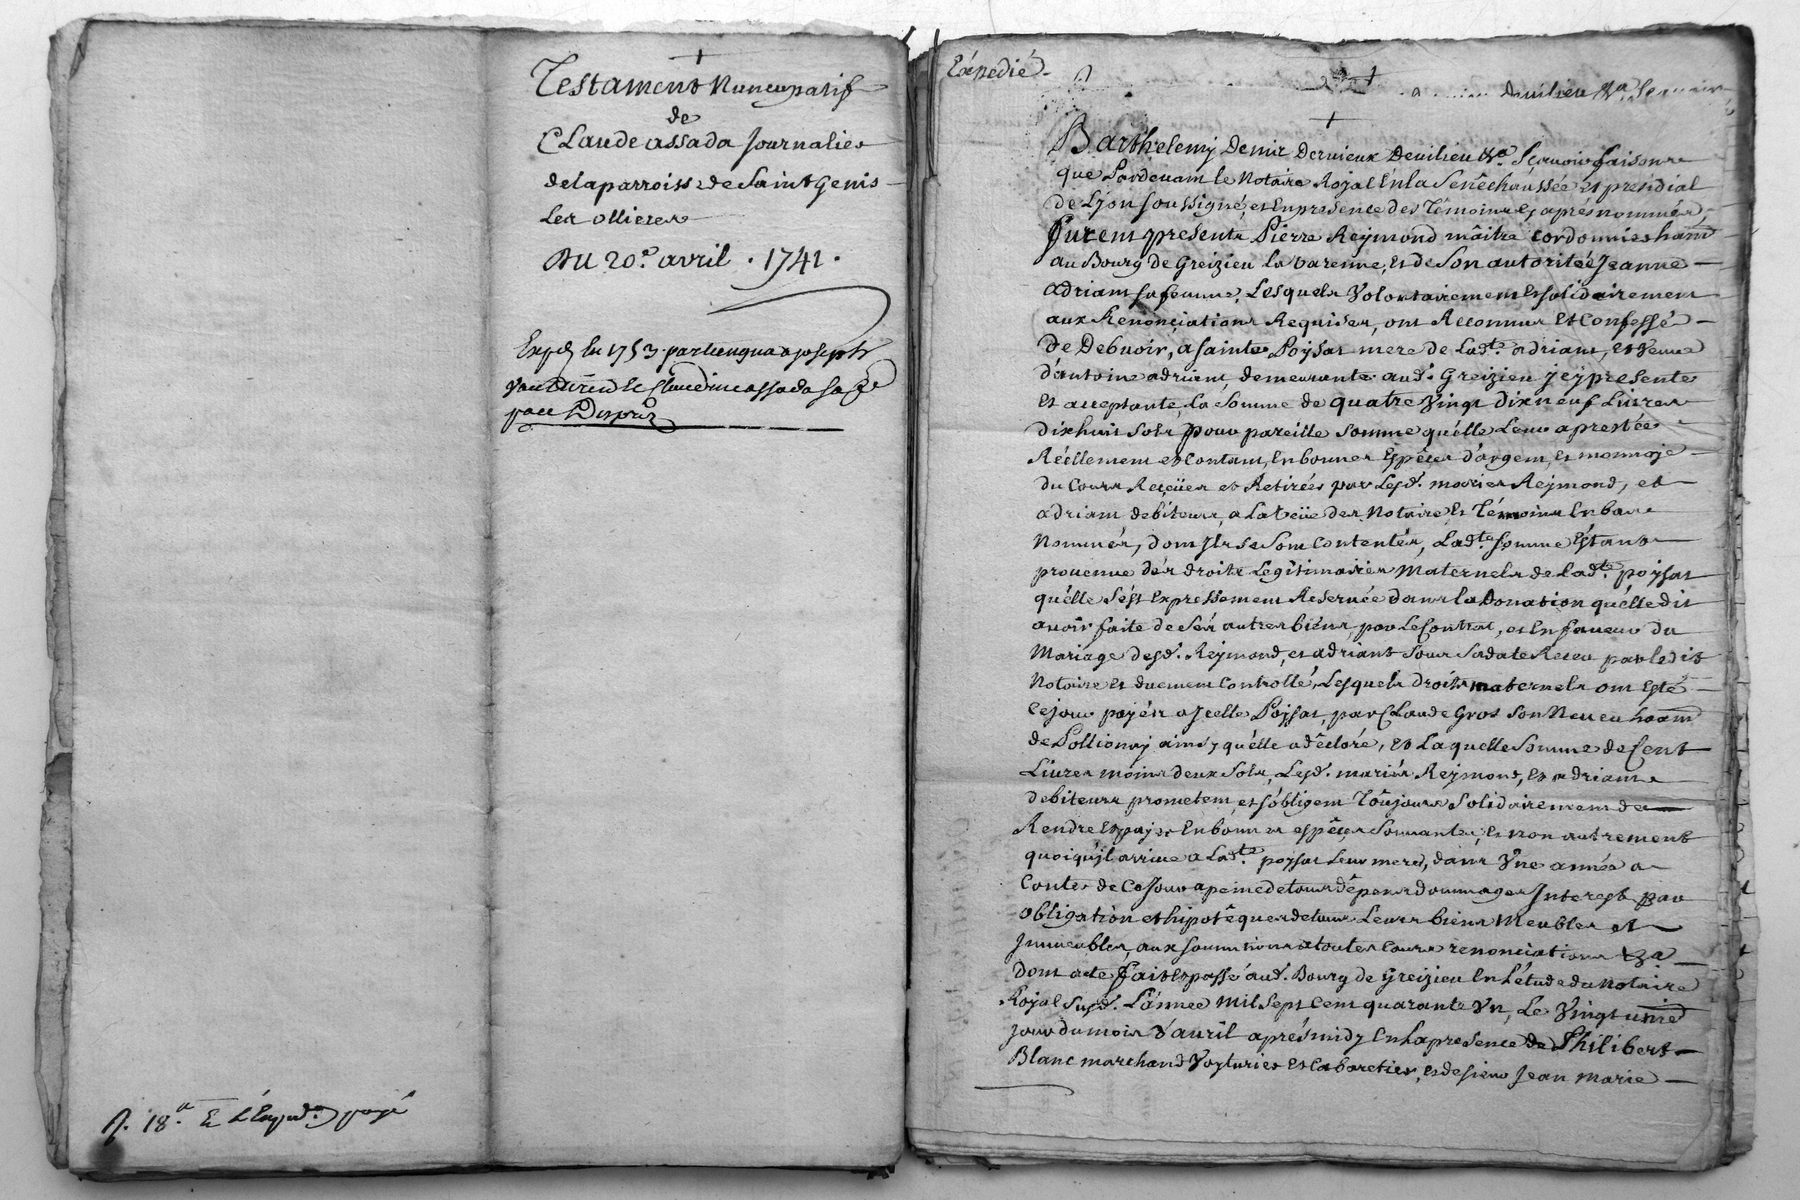 Testament Nuncupatif
de
Claude assada Journalier
de la parroisse de Saint Genis
Les ollieres
Du 20e. avril . 1741 .
Exped en 1753
Claudine assada sa fe
R. 18.a payé
Expedié.
Devilieu
Barthelemy Denir Dervieux Devilieu &a. Scavoir faisons
que Pardevant le Notaire Royal En la Senêchaussée et presidial
de Lyon soussigné, et En presence des Témoins Cy aprés nommés,
Furent presents Pierre Reymond mâitre cordonnier habit
au Bourg de Greizieu la varenne, et de Son autorité Jeanne
adriant sa femme, Lesquels Volontairement et solidairement
aux Renonçiations Requises, ont Reconnus Et Confessé
de Debvoir, a sainte Poysat mere de Ladte. adriant, et Veuve
d'antoine adriant, demeurante aud. Greizieu Jcy presente
Et acceptante, La Somme de quatre Vingt dix neuf Livres
dixhuit Sols pour pareille Somme qu'elle Leur a prestée
Réellement et Contant, En bonnes Espêces d'argent, et monnoje
du Cours Reçües et Retirées par Lesd. mariés Reymond, et
adriant debiteurs, a La Veüe des Notaire Et Témoins En bas
Nommés, dont Jls se Sont Contentés, Ladte. somme Estant
provenue dés droits Legitimaires Maternels de Ladte. poysat
qu'elle S'est Expressement Reservée dans la Donation qu'elle dit
avoir faite de Sés autres biens, par Le Contrat, et En faveur du
Mariage desd. Reymond, et adriant Sous Sa date Receu par le dit
Notaire Et duement Controllé, Lesquels droits maternels ont Esté
Ce jour payés a Jcelle Poysat, par Claude Gros Son Neveu habit
de Pollionay ainsy qu'elle a déclaré, Et Laquelle Somme de Cent
Livres moins deux Sols, Lesd. mariés Reymond, et adriant
debiteurs prometent, et s'obligent Toûjours Solidairement de
Rendre Et payer En bonnes espêces Sonnantes, Et non autrement
quoiqu'il arrive a Ladte. poysat Leur mere, dans Vne année a
Conter de Ce Jour a peine de tous dêpens dommages Interest par
obligation et hipotêques de tous Leurs biens Meubles et
Jmmeubles, aux soumtions a toutes Cours renonciations &a
Dont acte Fait Et passé aud. Bourg de Greizieu En L'étude du Notaire
Royal Susd. L'année Mil Sept Cent quarante Vn, Le Vingt unie
Jour du mois d'avril aprés midy En La presence de Philibert
Blanc marchand Voyturier et Cabaretier, et de sieur Jean Marie